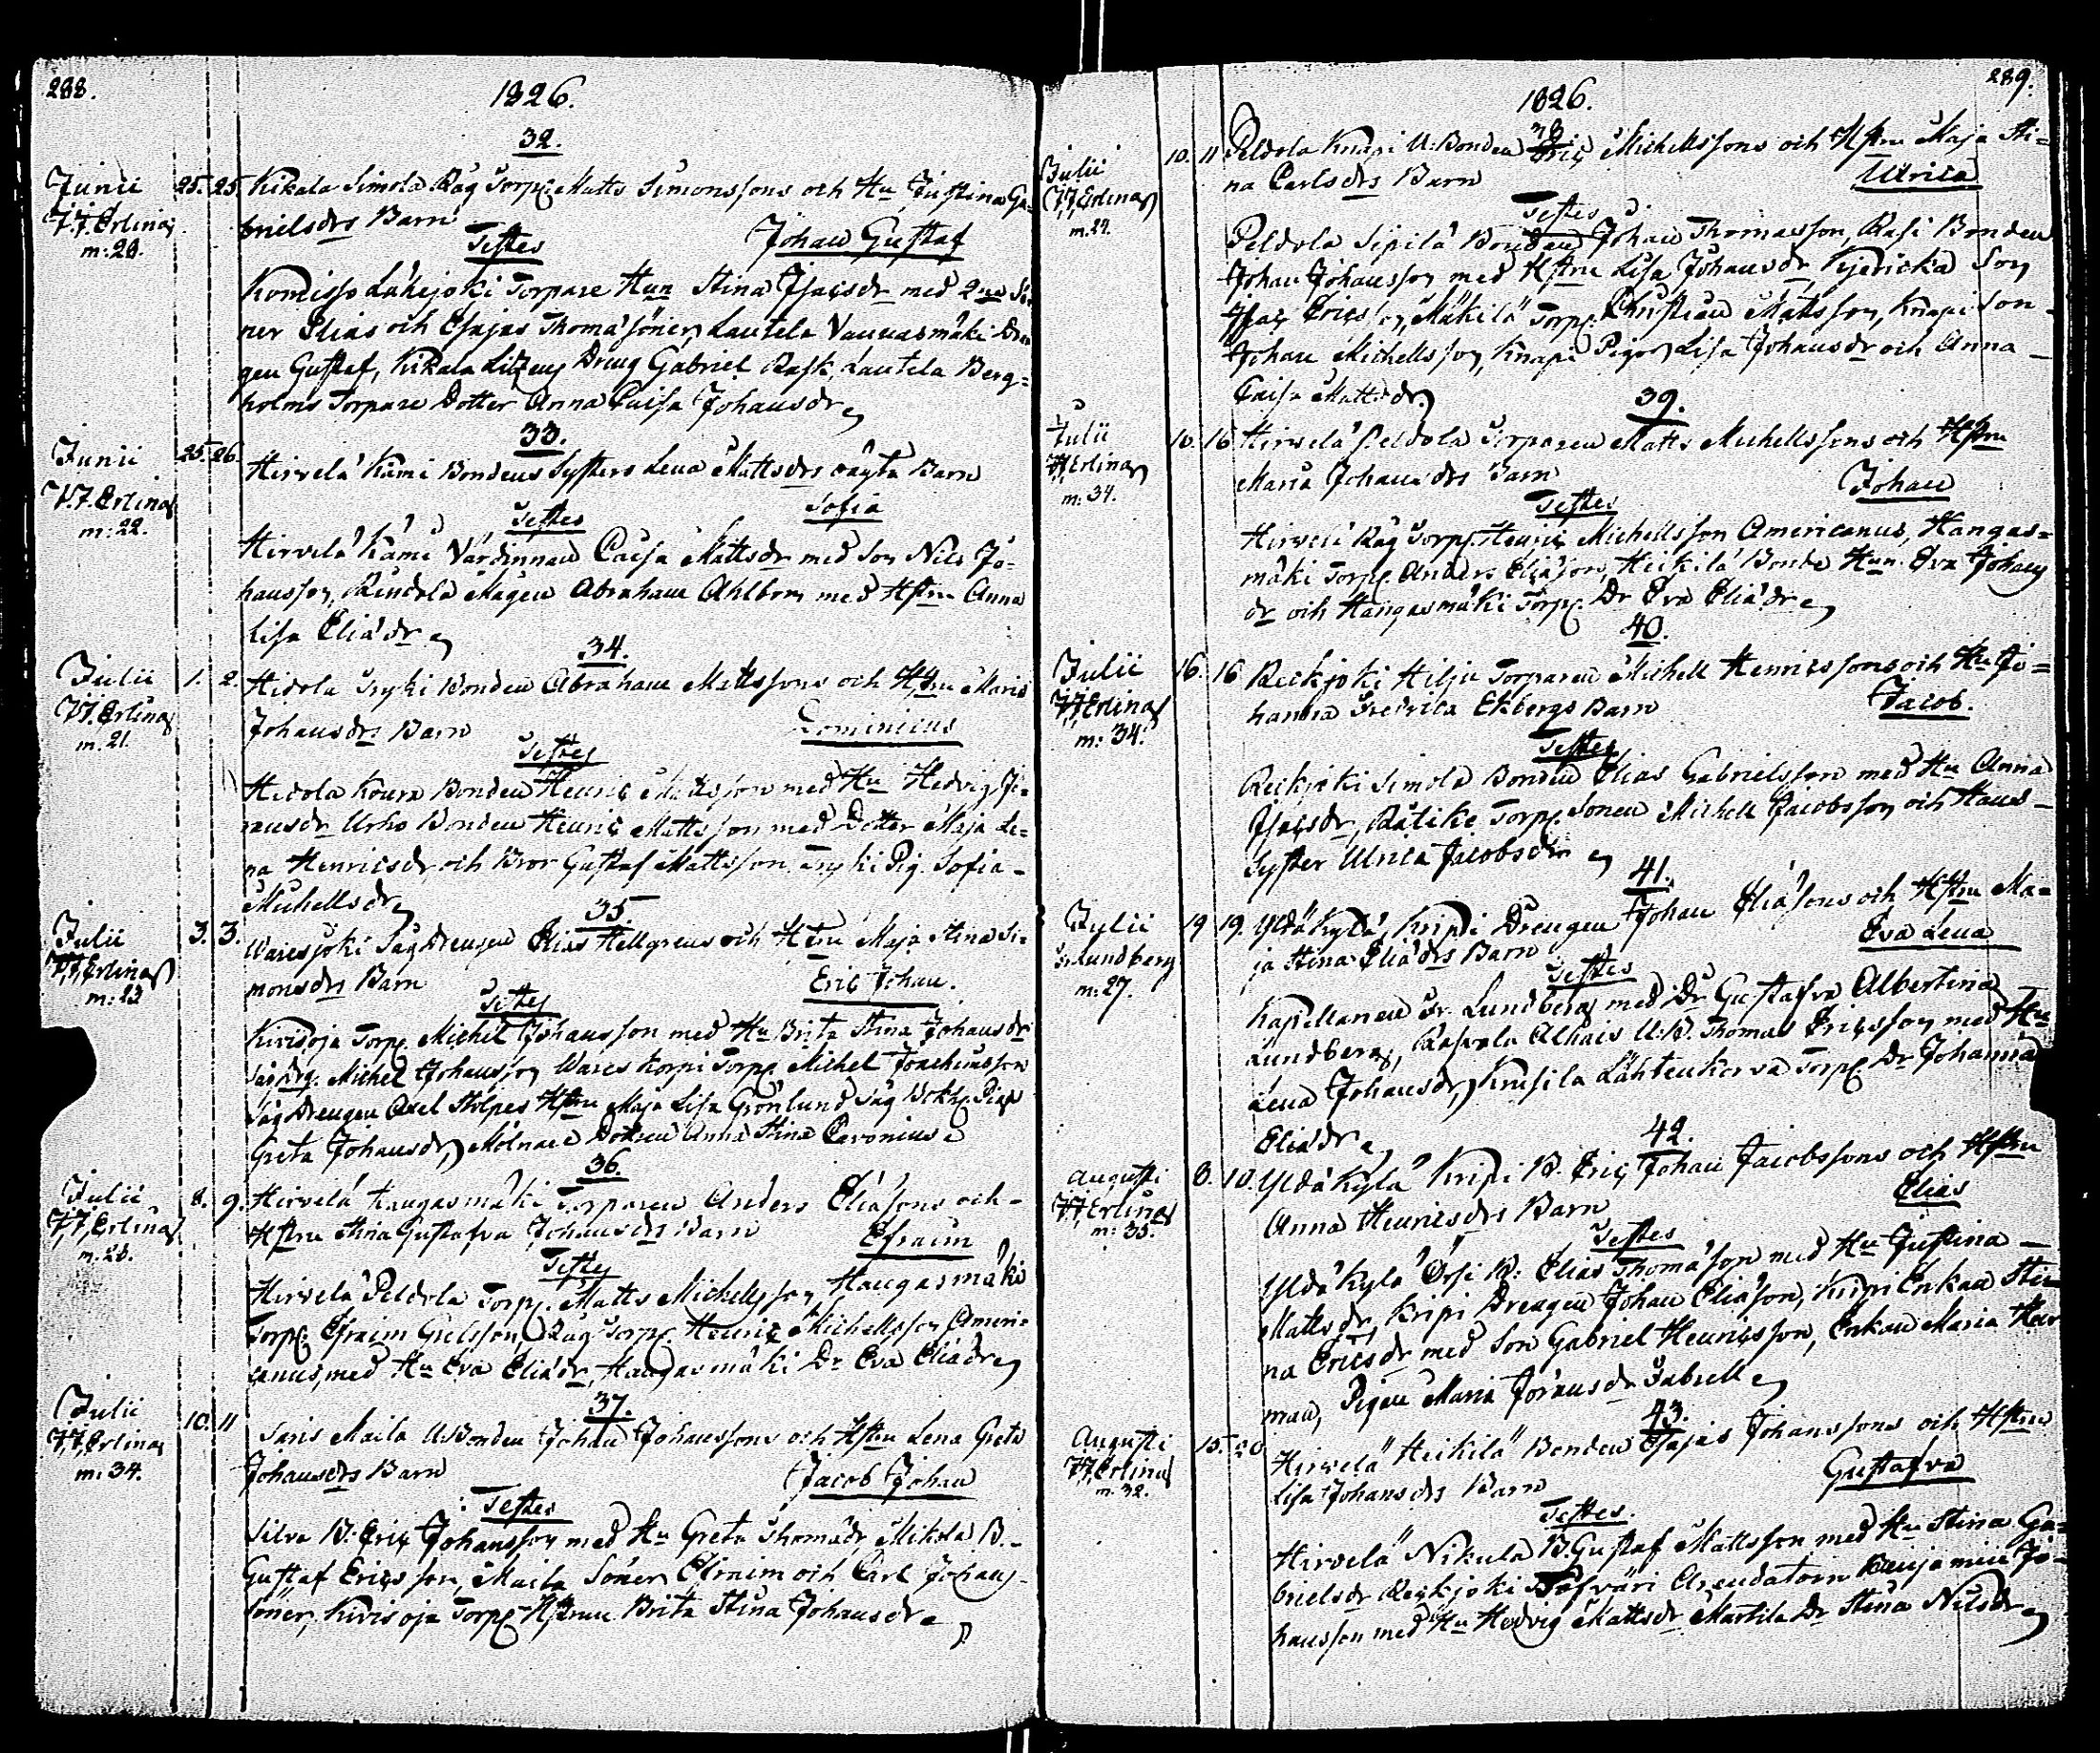 288.
1826.
32.
Junii 25. 25. Kikala Simola Råg Torp. Matts Simonssons och Hu Justina Ga-
J.J. Erlina
brielsdrs Barn
m: 20.
Testes Johan Gustaf
Komisso Lähejoki Torpare Hun Stina Isacsdr med 2ne Sö-
ner Elias och Esajas Thomasöner, Lautela Vannasmäki Dren
gen Gustaf, Kikala Litzens Dräng Gabriel Rask, Lautela Berg-
holms Torpare Dotter Anna Caisa Johansdr
33.
Junii 25. 26. Hirvelä Kämi Bondens Systers Lena Mattsdrs oägta Barn
J.J. Erlina
m: 22.
Testes Sofia
Hirvelä Kämi Värdinnan Caisa Mattsdr med Son Nils Jo-
hansson, Rindola Mågen Abraham Ahlbom med Hstru Anna
Lisa Eliädr
34.
Julii 1. 2. Hidola Tryki Bonden Abraham Mattssons och Hstru Maria
J.J. Erlina
m. 21.
Johansdrs Barn Dominicus
Testes
Hidola Koura Bonden Henric Mattsson med Hu Hedvig Jo-
hansdr Urho Bonden Henric Mattsson med Dotter Maja Le-
na Henricsdr och Bror Gustaf Mattsson, Tryki Pig. Sofia
Michellsdr
35.
Julii 3. 3. Waresjoki Såg Drengen Elias Hellgrens och Hstru Maja Stina Si-
J.J. Erlina
m: 23
monsdrs Barn Eric Johan.
Testes
Kivisoja Torp. Michel Johansson med Hu Brita Stina Johansdr
Såg Drg. Michel Johansson Wares Korpi Torp. Michel Joachimsson
Såg Drengen Axel Stolpes Hstru Maja Lisa Grönlund Såg Bokh. Piga
Greta Johansdr, Molnare Dottren Anna Stina Caronius
36.
Julii 8. 9. Hirvelä Hangasmäki Torparen Anders Eliäsons och
J.J. Erlina
m. 28.
Hstru Stina Gustafva Johansdrs Barn Efraim
Testes
Hirvelä Peldola Torp. Matts Michellsson, Hangasmäki
Torp. Efraim Grelsson, Råg Torp. Henric Michellsson Ameri-
canus, med Hu Eva Eliädr, Hangasmäki Dr Eva Eliädr
37.
Julii 10. 11 Saris Maila U. Bonden Johan Johanssons och Hstru Lena Greta
J.J. Erlina
m. 34.
Johansdrs Barn Jacob Johan
Testes
Silva B. Eric Johansson med Hu Greta Thomädr Mikola B.
Gustaf Ericsson, Maila Söner Efraim och Carl Johans-
söner, Kivisoja Torp. Hstrun Brita Stina Johansdr
289.
1826.
38
Julii 10. 11 Peldola Knapi U. Bonden Eric Michellssons och Hstru Maja Sti-
J.J. Erlina
m. 29.
na Carlsdrs Barn Ulrica
Testes
Peldola Sipilä Bonden Johan Thomasson, Rasi Bonden
Johan Johansson med Hstru Lisa Johansdr, Kjericka Son
Isac Ericsson, Mäkilä Torp. Christian Mattsson, Knapi Son
Johan Michellsson, Knapi Pigor Lisa Johansdr och Anna
Caisa Mattsdr
39.
Julii 10. 16 Hirvelä Peldola Torparen Matts Michellssons och Hstru
J.J. Erlina
m: 34.
Maria Johansdrs Barn Johan
Testes
Hirvelä Råg Torp. Henric Michellsson Americanus, Hangas-
mäki Torp. Anders Eliäson, Heikilä Bonde Hun Eva Johans
dr och Hangasmäki Torp. Dr Eva Eliädr
40.
Julii 16. 16 Reckjoki Hilju Torparen Michell Henricssons och Hu Jo-
J.J. Erlina
m: 34.
hanna Fredrica Ekbergs Barn Jacob.
Testes
Reikjoki Simola Bonden Elias Gabrielsson med Hu Anna
Isacsdr, Rätike Torp. Sonen Michell Jacobsson och Hans
Syster Ulrica Jacobsdr
41.
Julii 19 19. Yldäkylä, Kripi Drengen Johan Eliäsons och Hstru Ma-
Fr. Lundberg
m: 27.
ja Stina Eliädrs Barn Eva Lena
Testes
Kapellanen Fr. Lundberg med Dr Gustafva Albertina
Lundberg, Raswala Alhais U.B. Thomas Ericsson med Hu
Lena Johansdr, Krusila Lähtenkorva Torp. Dr Johanna
Eliädr
42.
Augusti 8. 10. Yldäkylä Kripi B. Eric Johan Jacobssons och Hstru
J.J. Erlina
m: 35.
Anna Henricsdrs Barn Elias
Testes
Yldäkylä Orsi B. Elias Thomäson med Hu Justina
Mattsdr, Kripi Drengen Johan Eliäson, Kripi Enkan Sti-
na Ericsdr med Son Gabriel Henricsson, Enkan Maria Her
man, Pigan Maria Johansdr Sabell
43.
Augusti 15. 20. Hirvelä Heikilä Bonden Esajas Johanssons och Hstru
J.J. Erlina
m. 32.
Lisa Johansdrs Barn Gustafva
Testes.
Hirvelä Nikula B. Gustaf Mattsson med Hu Stina Ga-
brielsdr Reikjoki Arendatorn Benjamin Jo-
hansson med Hu Hedvig Mattsdr Martila Dr Stina Nilsdr